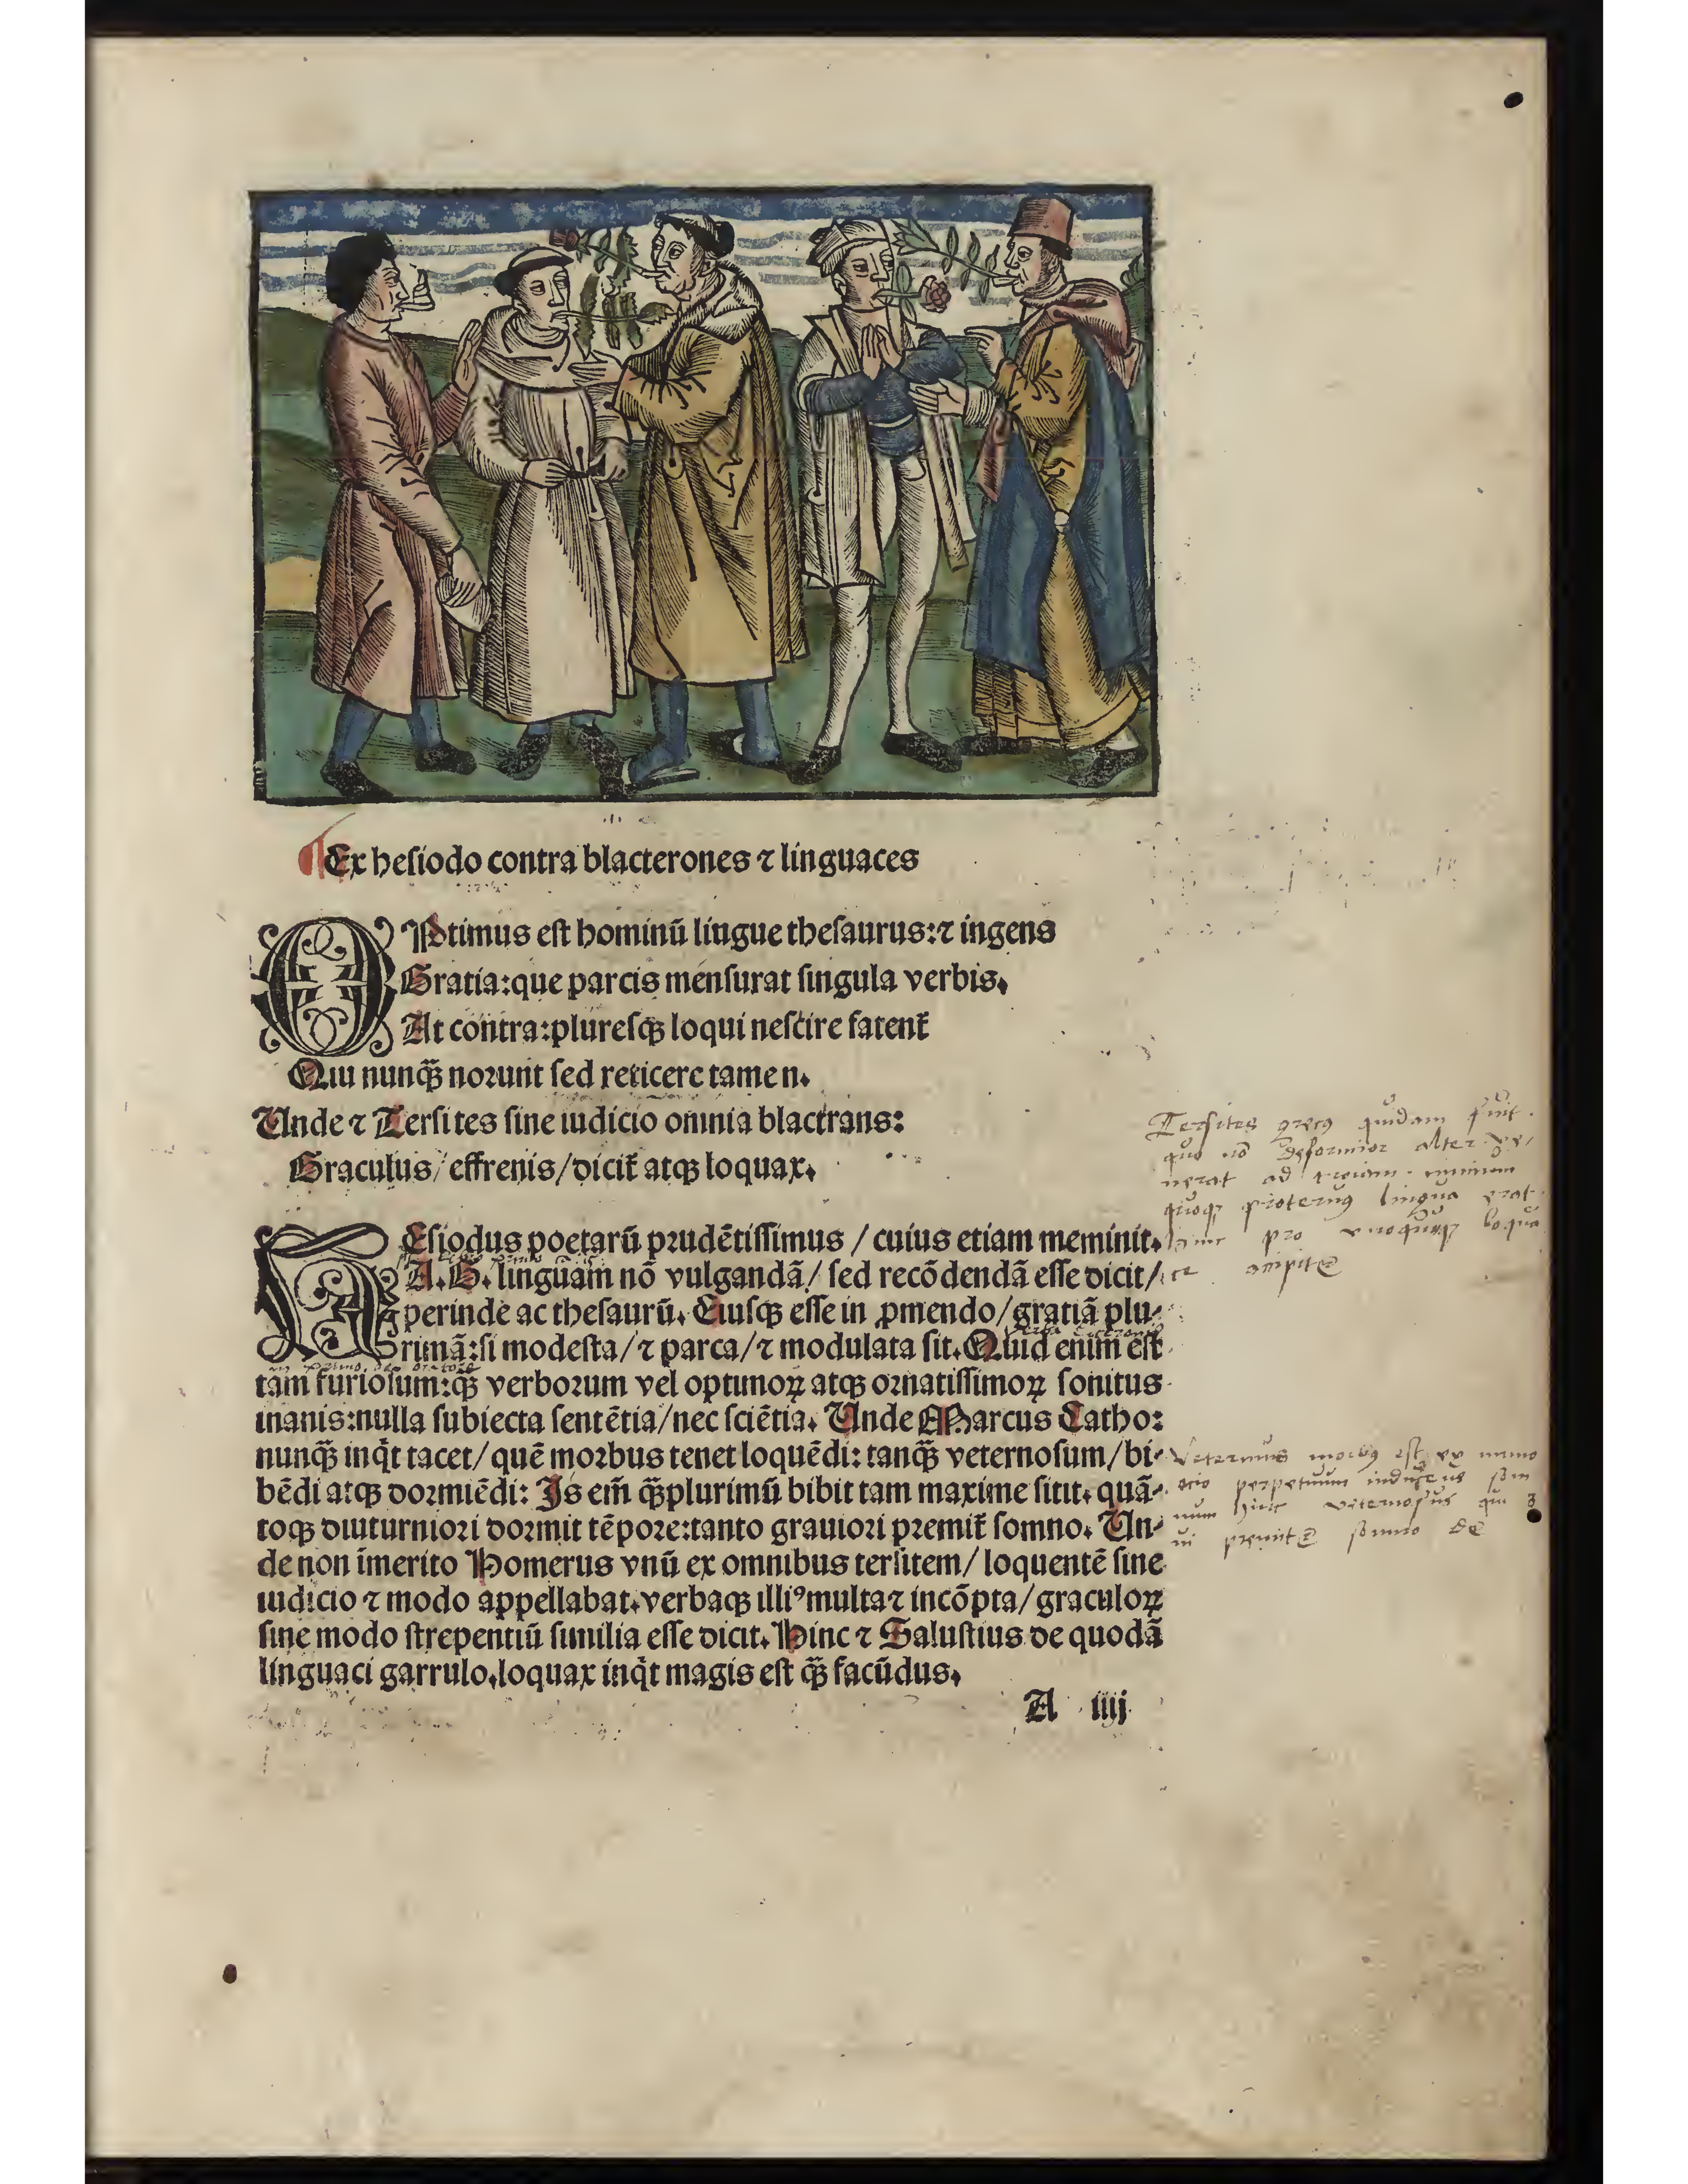 Ex hesiodo contra blacterones ⁊ linguaces
OPtimus est hominū lingue thesaurus:⁊ ingens
Gratia:que parcis mensurat singula verbis.
At contra:pluresqꝫ loqui nescire fatent᷑
Qui nunq̄ꝫ norunt sed reticere tamen.
Unde ⁊ Tersites sine iudicio omnia blactrans:
Graculus/effrenis/dicit᷑ atqꝫ loquax.
Tersites grecꝰ quidam fuit.
quo nō deformior alter ve/
nerat ad troiam.
quoqꝫ proteruꝰ lingua erat.
hinc pro
accipit᷑
HEsiodus poetarū prudētissimus / cuius etiam meminit.
A.G. linguam nō vulgandā/ sed recōdendā esse dicit/
perinde ac thesaurū. Eiusqꝫ esse in ꝓmendo/gratiā plu-
rimā:si modesta/⁊ parca/⁊ modulata sit.Quid enim est
tam furiosum:q̄ꝫ verborum vel optimoꝝ atqꝫ ornatissimoꝝ sonitus
inanis:nulla subiecta sentētia/nec sciētia. Unde Marcus Catho:
nunq̄ꝫ inq̇t tacet/ quē morbus tenet loquēdi: tanq̄ꝫ veternosum/bi-
bēdi atqꝫ dormiēdi: Is em̄ q̄ꝫplurimū bibit tam maxime sitit. quā-
toqꝫ diuturniori dormit tēpore:tanto grauiori premit᷑ somno. Un-
de non imerito Homerus vnū ex omnibus tersitem/ loquentē sine
iudicio ⁊ modo appellabat.verbaqꝫ illiꝰ multa⁊ incōpta/ graculoꝝ
sine modo strepentiū similia esse dicit. Hinc ⁊ Salustius de quodā
linguaci garrulo.loquax inq̇t magis est q̄ꝫ facūdus.
Veternus morbꝰ est ex nimio
ocio perpetuum inducens som
num hinc veternosus qui
premit᷑ somno
A iiij